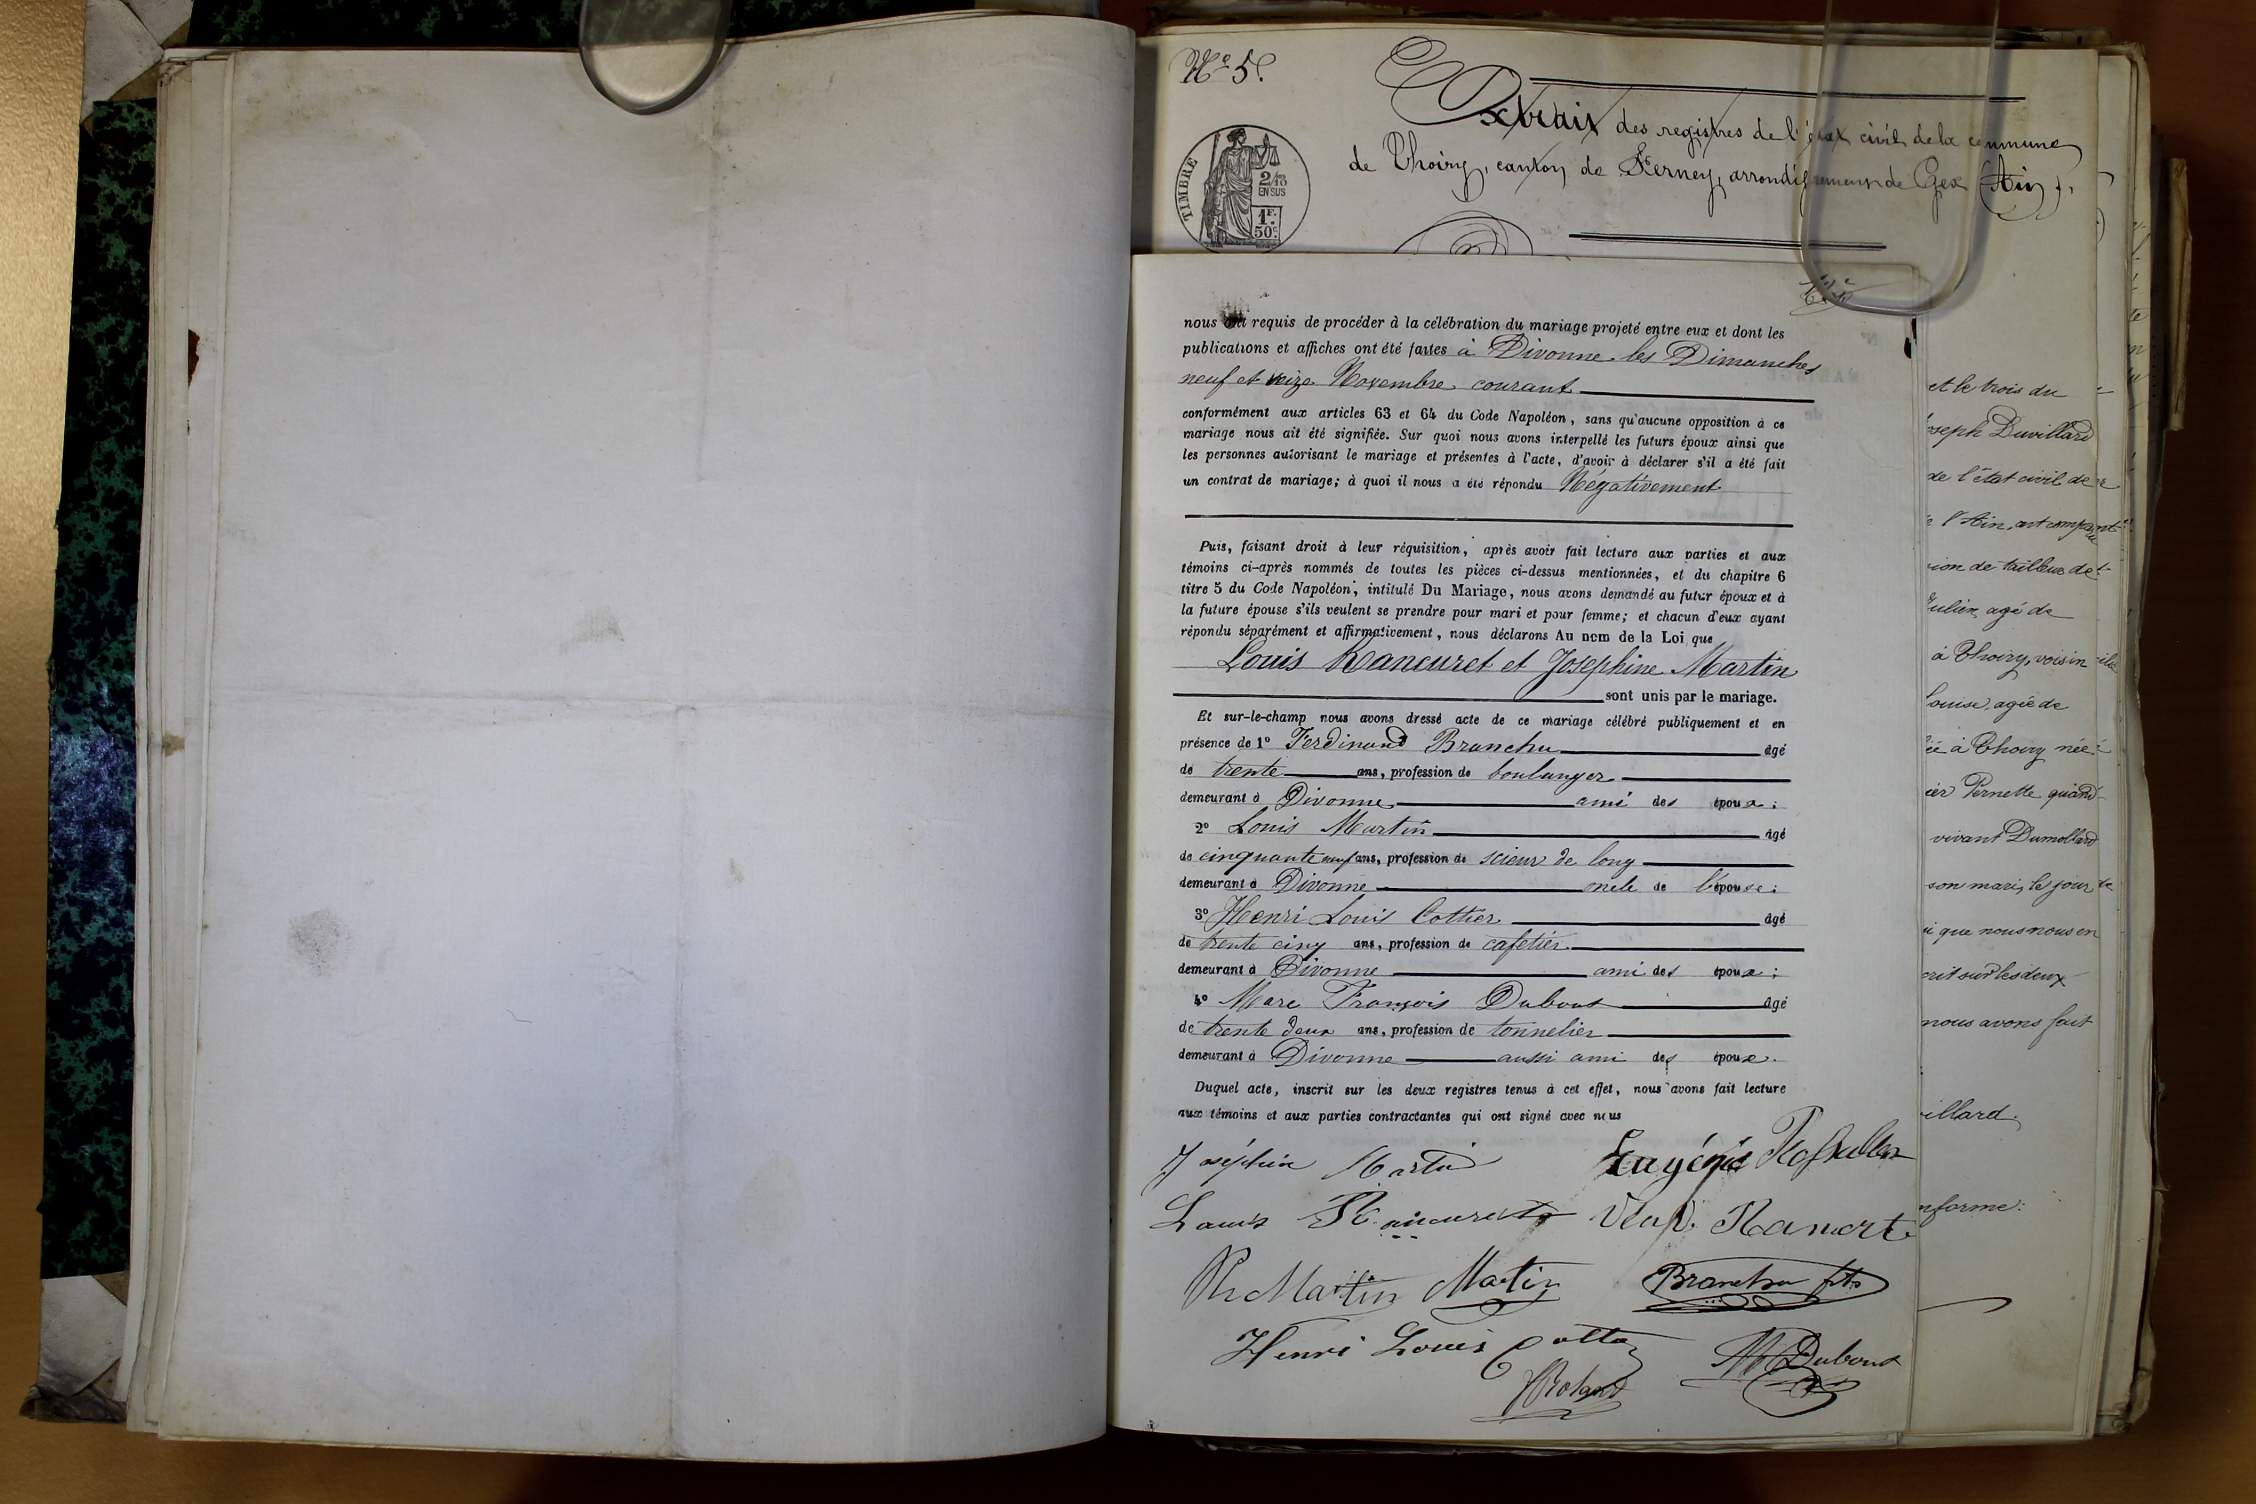 No 5.
Extrait des registres de l'état civil de la commune
de Thoiry, canton de Ferney, arrondissement de Gex (Ain).
TIMBRE
2/10
EN SUS
1F.
50c.
nous ont requis de procéder à la célébration du mariage projeté entre eux et dont les
publications et affiches ont été faites à Divonne les Dimanches
neuf et seize Novembre courant
conformément aux articles 63 et 64 du Code Napoléon, sans qu'aucune opposition à ce
mariage nous ait été signifiée. Sur quoi nous avons interpellé les futurs époux ainsi que
les personnes autorisant le mariage et présentes à l'acte, d'avoir à déclarer s'il a été fait
un contrat de mariage; à quoi il nous a été répondu Négativement
Puis, faisant droit à leur réquisition, après avoir fait lecture aux parties et aux
témoins ci-après nommés de toutes les pièces ci-dessus mentionnées, et du chapitre 6
titre 5 du Code Napoléon, intitulé Du Mariage, nous avons demandé au futur époux et à
la future épouse s'ils veulent se prendre pour mari et pour femme; et chacun d'eux ayant
répondu séparément et affirmativement, nous déclarons Au nom de la Loi que
Louis Rancuret et Joséphine Martin
sont unis par le mariage.
Et sur-le-champ nous avons dressé acte de ce mariage célébré publiquement et en
présence de 1o Ferdinand Branchu âgé
de trente ans, profession de boulanger
demeurant à Divonne ami des époux;
2o Louis Martin âgé
de cinquante neuf ans, profession de scieur de long
demeurant à Divonne oncle de l'épouse;
3o Henri Louis Cottier âgé
de trente cinq ans, profession de cafetier
demeurant à Divonne ami des époux;
4o Marc François Dubout âgé
de trente deux ans, profession de tonnelier
demeurant à Divonne aussi ami des époux.
Duquel acte, inscrit sur les deux registres tenus à cet effet, nous avons fait lecture
aux témoins et aux parties contractantes qui ont signé avec nous
Joséphin Martin Eugénie
Louis Rancuret
Ph Martin Martin Branchu fils
Henri Louis
Roland Dubout
et le trois du
oseph Duvillard
de l'état civil de
l'Ain, ont comparu
ion de tailleur de
Julien, agé de
à Thoiry, voisin
louise, agée de
à Thoiry née
ier Pernette quand
vivant Dumollard
son mari, le jour
que nous nous en
crit sur les deux
nous avons fait
illard
nforme: